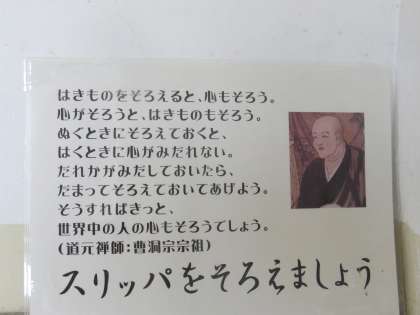 はきものをそろえると、心もそろう。
心がそろうと、はきものもそろう。
ぬぐときにそろえておくと、
はくときに心がみだれない。
だれかがみだしておいたら、
だまってそろえておいてあげよう。
そうすればきっと、
世界中の人の心もそろうでしょう。
(道元禅師:曹洞宗宗祖)
スリッパをそろえましょう